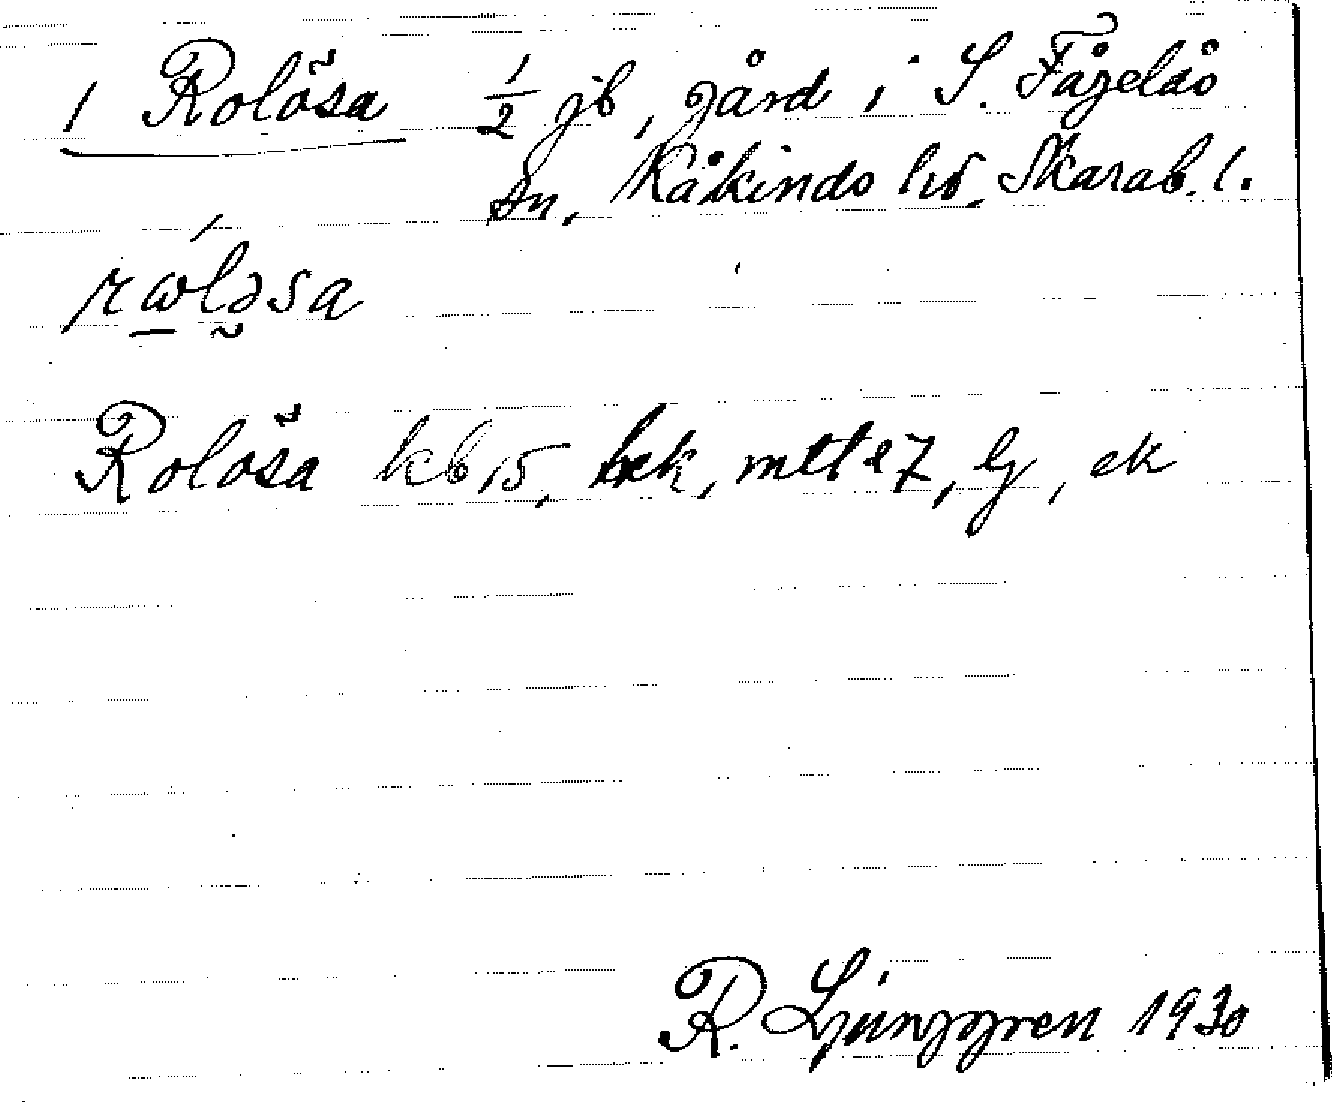 1 Rolösa ½ jb, gård i S. Fågelås
sn, Kåkinds hd, Skarab. l.
rω̲lə̰sa
Rolösa kb 15, hek, mtl e7, lg, ek
R. Ljunggren 1930